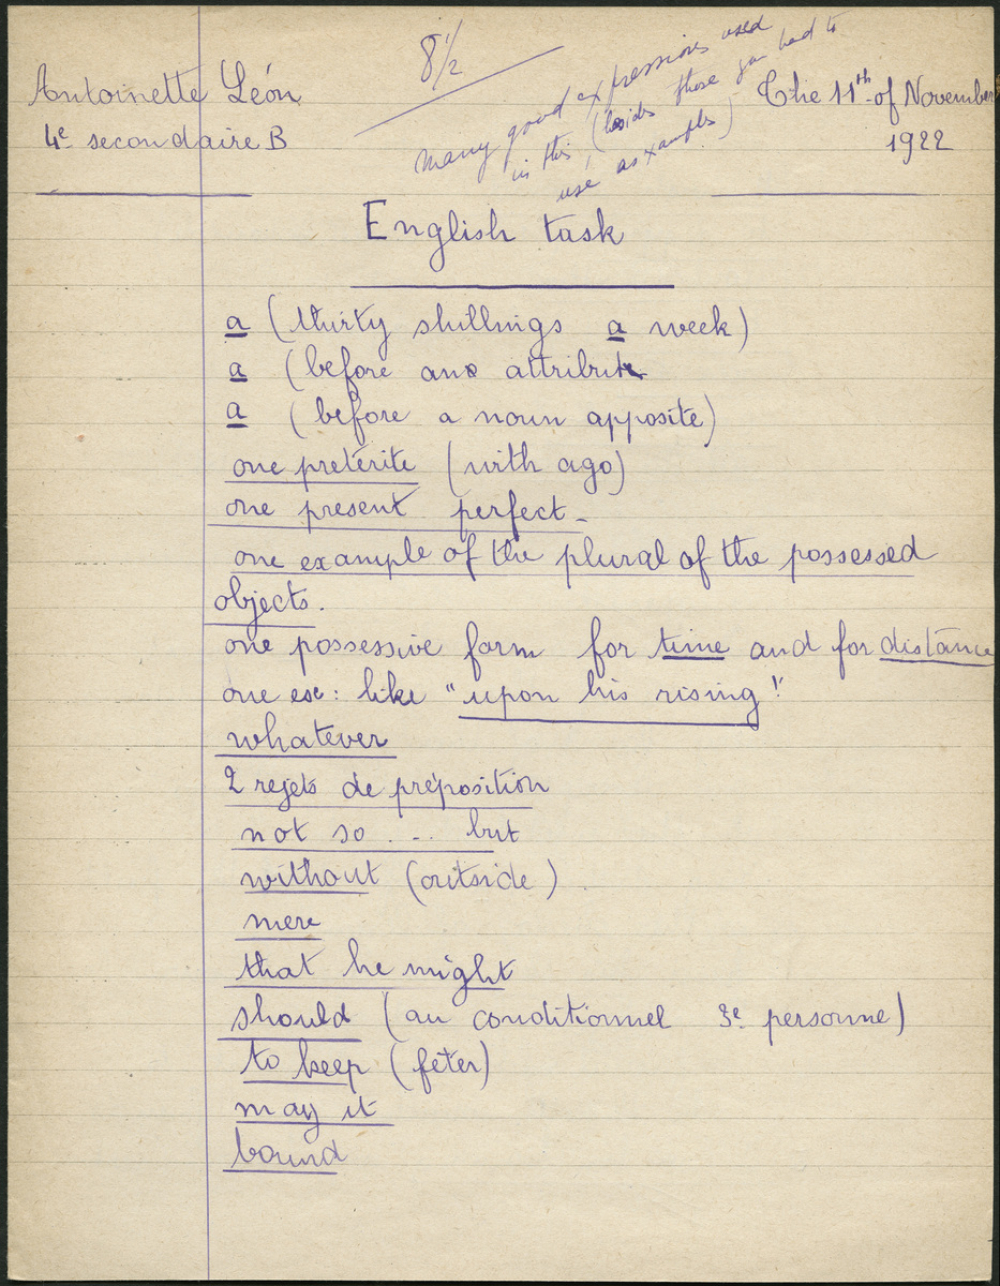 8 1/2
many good expressions used
in this, (besides those you had to
use as examples)
Antoinette Léon
The 11th of November
4e secondaire B
1922
English task
a (thirty shillings a week)
a (before an attribute
a (before a noun apposite)
one preterite (with ago)
one present perfect -
one example of the plural of the possessed
objects.
one possessive form for time and for distance
one ex: like "upon his rising"
whatever
2 rejets de préposition
not so ... but
without (outside)
mere
that he might
should (au conditionnel 3e personne)
to keep (fêter)
may it
bound